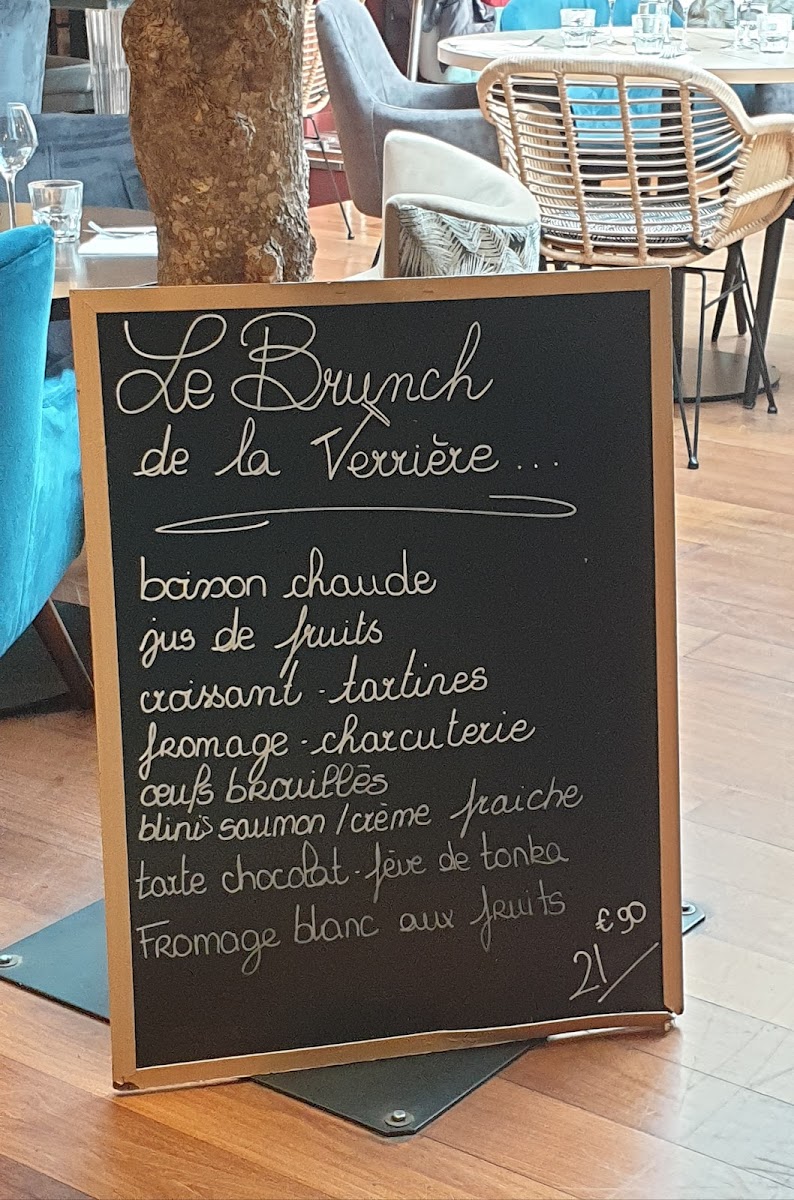 Le Brunch
de la Verrière...
boisson chaude
jus de fruits
croissant - tartines
fromage - charcuterie
œufs brouillés
blinis saumon / crème fraiche
tarte chocolat - fève de tonka
Fromage blanc aux fruits
21/€90